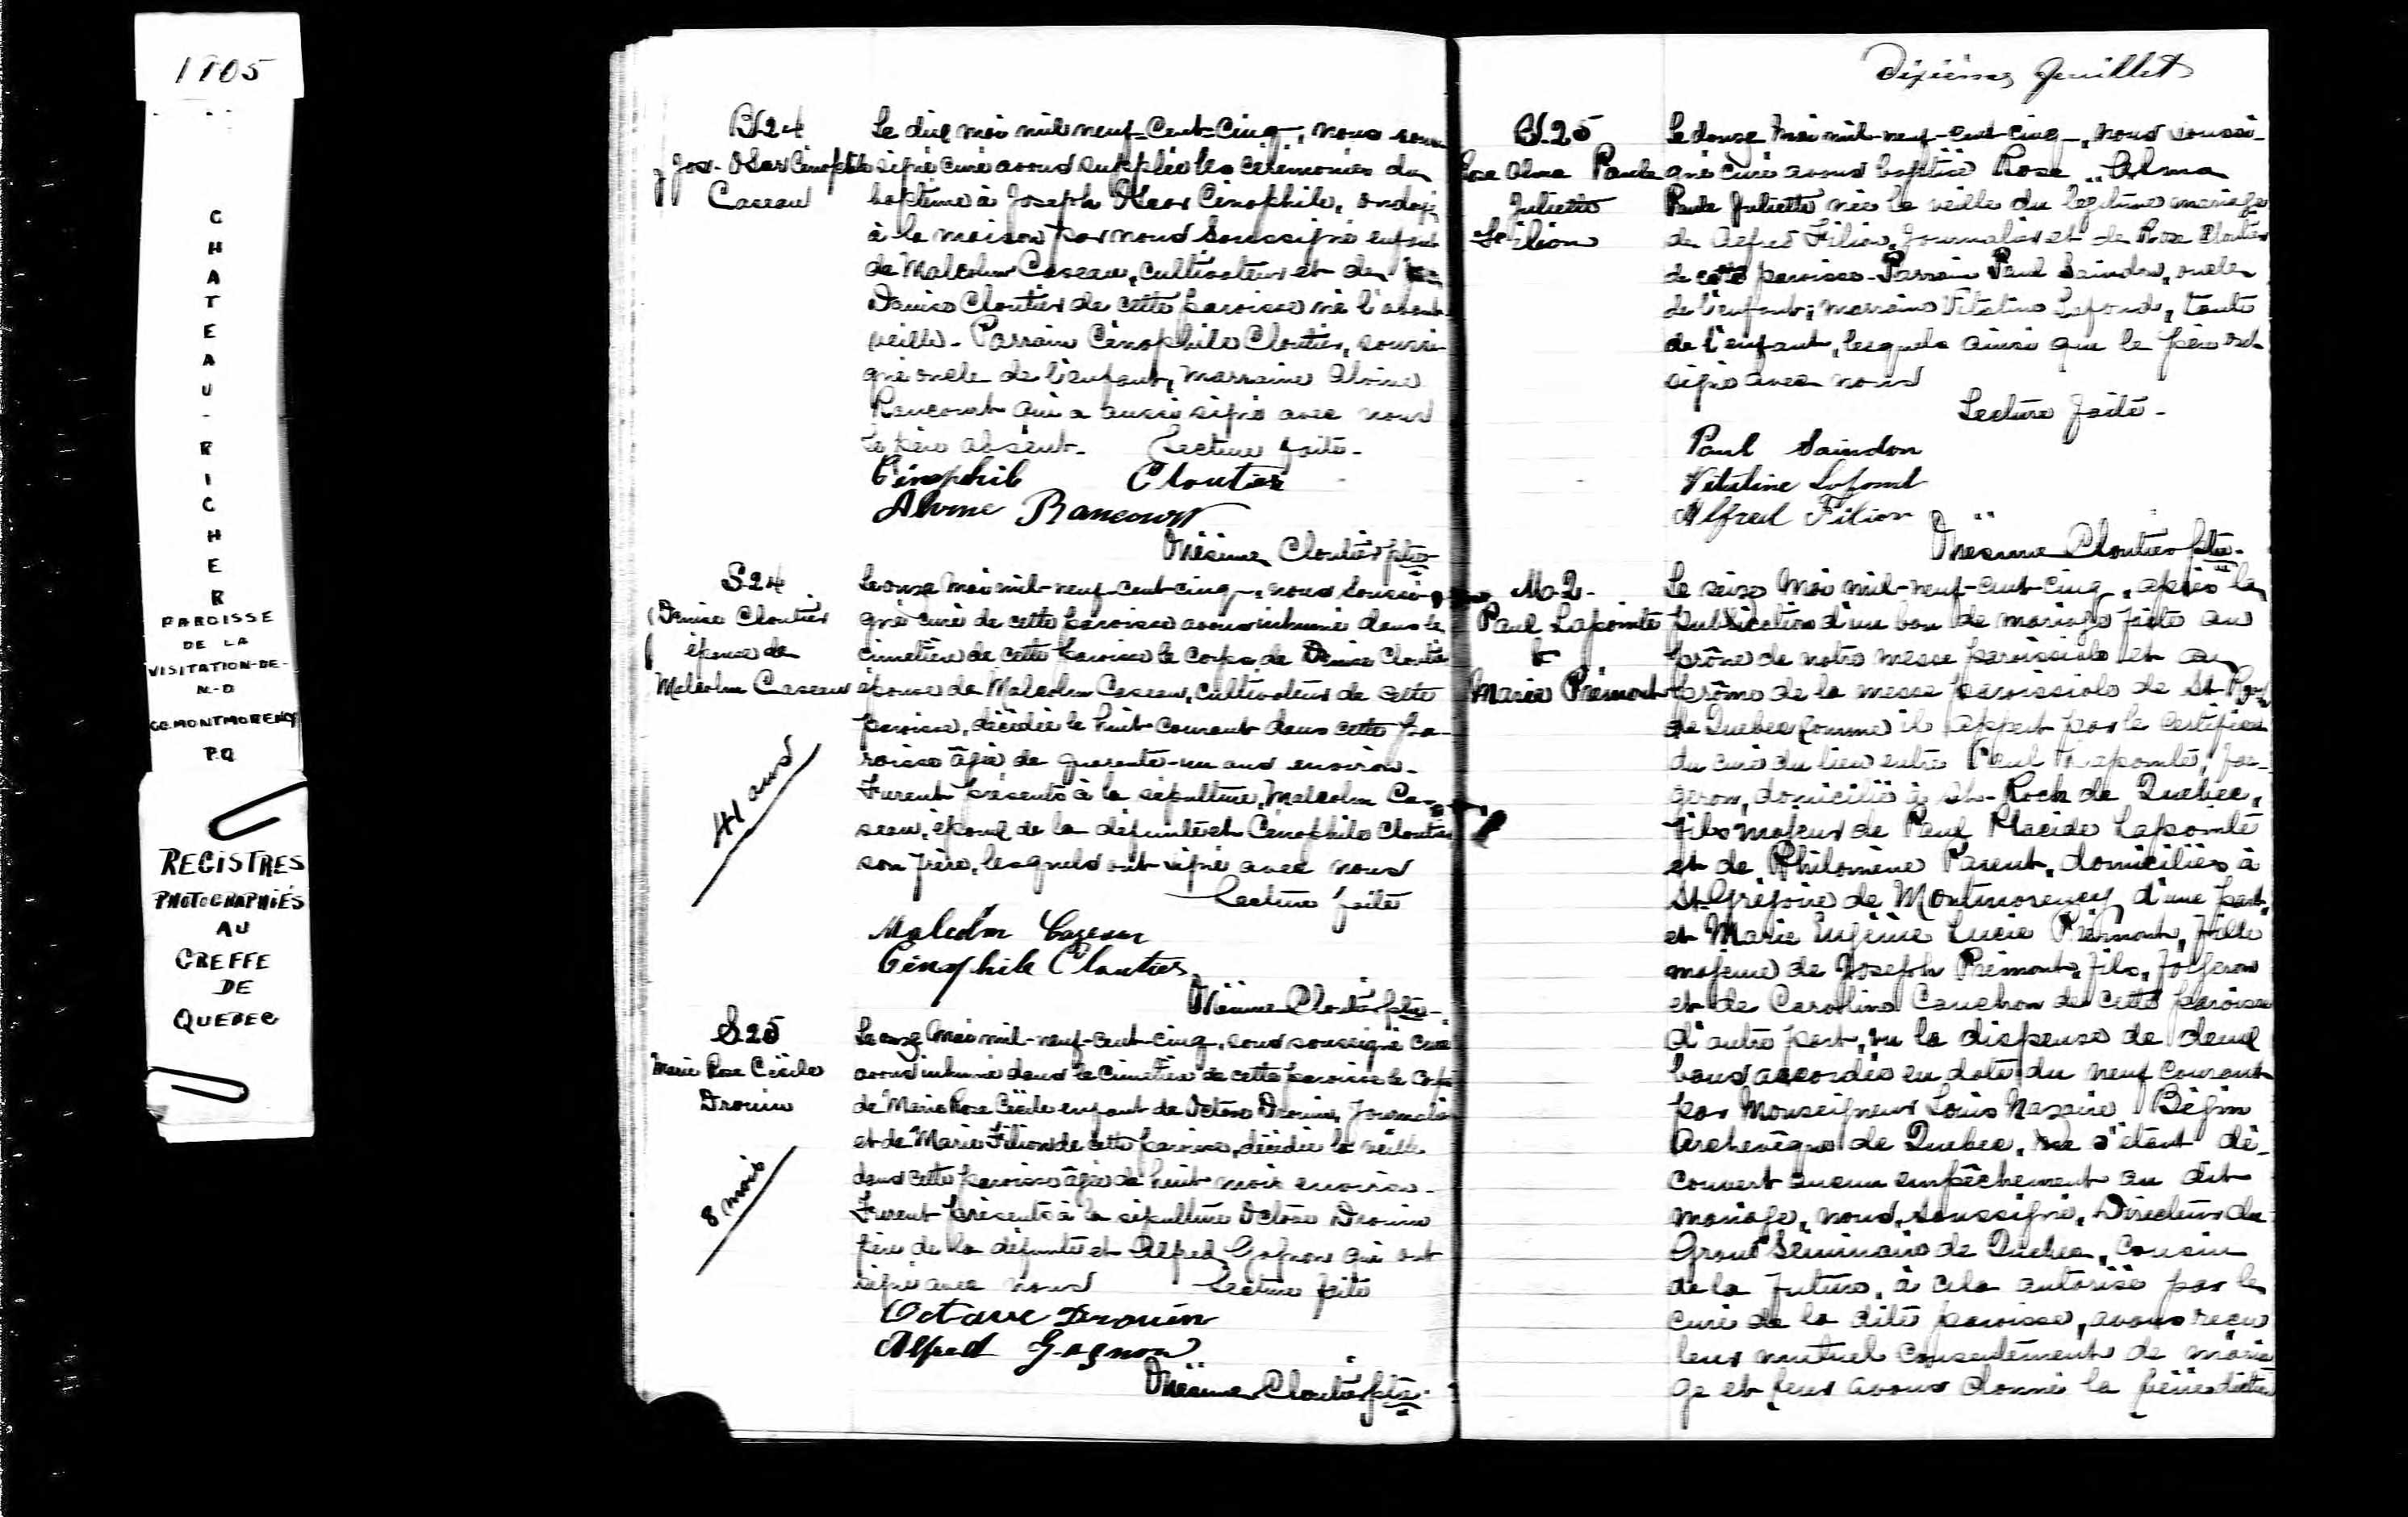 1905
CHATEAU-RICHER
PAROISSE
DE LA
VISITATION-DE-
N-D
CO. MONTMORENCY
P.Q
REGISTRES
PHOTOGRAPHIÉS
AU
GREFFE
DE
QUEBEC
B.24
Jos. Cénophile
Caseau
Le dix mai mil neuf-cent-cinq, nous sous-
signé curé avons supplée les cérémonies du
baptême à Joseph Cénophile, ondoyé
à la maison par nous soussigné enfant
de Malcolm Caseau, cultivateur et de
Denise Cloutier de cette paroisse né l'avant
veille. Parrain Cénophile Cloutier, soussi-
gné oncle de l'enfant, marraine Alvine
Rancourt qui a aussi signé avec nous
le père absent. Lecture faite.
Cénophile Cloutier
Alvine Rancourt
Onésime Cloutier ptre
S.24
Denise Cloutier
épouse de
Malcolm Caseau
41 ans
Le onze Mai mil-neuf-cent-cinq, nous soussi-
gné curé de cette paroisse avons inhumé dans le
cimetière de cette paroisse le corps de Denise Cloutier
épouse de Malcolm Caseau, cultivateur de cette
paroisse, décédée le huit courant dans cette pa-
roisse âgée de quarante-un ans environ.
Furent présents à la sépulture, Malcolm Ca-
seau, époux de la défunte et Cénophile Cloutier
son frère, lesquels ont signé avec nous
Lecture faite
Malcolm Cazeau
Cénophile Cloutier
Onésime Cloutier ptre
S.25
Marie Rose Cécile
Drouin
8 mois
Le onze Mai mil-neuf-cent-cinq, nous soussigné curé
avons inhumé dans le cimetière de cette paroisse le corps
de Marie Rose Cécile enfant de Octave Drouin, Journalier
et de Marie Filion de cette paroisse, décédée la veille
dans cette paroisse âgée de huit mois environ.
Furent présents à la sépulture Octave Drouin
père de la défunte et Alfred Gagnon qui ont
signé avec nous Lecture faite
Octave Drouin
Alfred Gagnon
Onésime Cloutier ptre
Dixième feuillet
B.25
Rose Alma Paule
Juliette
Filion
Le douze Mai mil-neuf-cent-cinq, nous soussi-
gné curé avons baptisé Rose Alma
Paule Juliette née la veille du légitime mariage
de Alfred Filion, Journalier et de Rose Cloutier
de cette paroisse. Parrain Paul Saindon, oncle
de l'enfant, marraine Vitaline Lafond, tante
de l'enfant, lesquels ainsi que le père ont
signé avec nous
Lecture faite.
Paul Saindon
Vitaline Lafond
Alfred Filion
Onésime Cloutier ptre.
M.2.
Paul Lapointe
et
Marie Prémont
Le seize Mai mil-neuf-cent-cinq, après la
publication d'un ban de mariage faite au
prône de notre messe paroissiale et au
prône de la messe paroissiale de St-Roch
de Quebec comme il appert par le certificat
du curé du lieu entre Paul Lapointe, for-
geron, domicilié à St-Roch de Quebec,
fils majeur de Paul Placide Lapointe
et de Philomène Parent, domiciliés à
St-Grégoire de Montmorency d'une part,
et Marie Eugénie Lucie Prémont, fille
majeure de Joseph Prémont, fils, forgeron
et de Caroline Cauchon de cette paroisse
d'autre part, vu la dispense de deux
bans accordée en date du neuf courant
par Monseigneur Louis Nazaire Bégin
Archevêque de Quebec, ne s'étant dé-
couvert aucun empêchement au dit
mariage, nous, soussigné, Directeur du
Grand Séminaire de Quebec, Cousin
de la future, à cela autorisé par le
curé de la dite paroisse, avons reçu
leur mutuel consentement de maria-
ge et leur avons donné la bénédiction